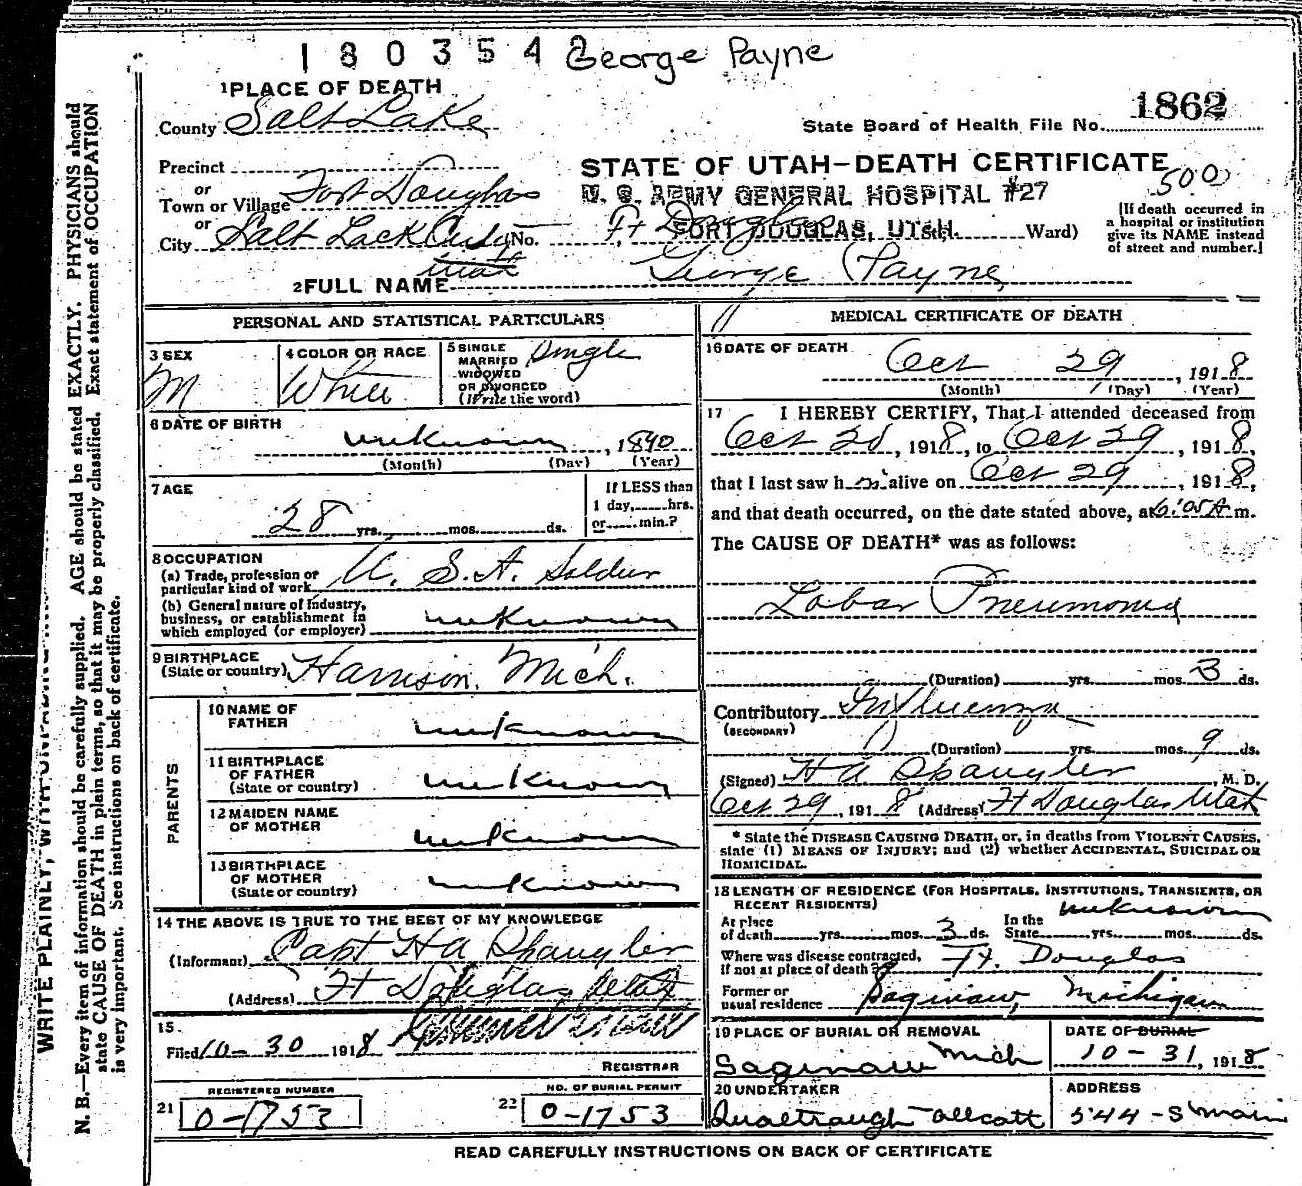 180354 George Payne
1 PLACE OF DEATH
1862
County Salt Lake
State Board of Health File No.
Precinct
STATE OF UTAH—DEATH CERTIFICATE
500
or
Town or Village Fort Douglas
U. S. ARMY GENERAL HOSPITAL #27
FORT DOUGLAS, UTAH.
or
City Salt Lack City No. Ft Douglas St. Ward)
[If death occurred in
a hospital or institution
give its NAME instead
of street and number.]
Utah
2 FULL NAME George Payne
PERSONAL AND STATISTICAL PARTICULARS
3 SEX
M
4 COLOR OR RACE
White
5 SINGLE
MARRIED
WIDOWED
OR DIVORCED
(Write the word)
Single
6 DATE OF BIRTH
unknown, 1890
(Month) (Day) (Year)
7 AGE
28 yrs. mos. ds.
If LESS than
1 day, hrs.
or min.?
8 OCCUPATION
(a) Trade, profession or
particular kind of work U. S. A. Soldier
(b) General nature of industry,
business, or establishment in
which employed (or employer) unknown
9 BIRTHPLACE
(State or country) Harrison, Mich.
PARENTS
10 NAME OF
FATHER unknown
11 BIRTHPLACE
OF FATHER
(State or country) unknown
12 MAIDEN NAME
OF MOTHER unknown
13 BIRTHPLACE
OF MOTHER
(State or country) unknown
14 THE ABOVE IS TRUE TO THE BEST OF MY KNOWLEDGE
(Informant) Capt H A Spangler
(Address) Ft Douglas Utah
15.
Filed 10-30 1918
REGISTRAR
REGISTERED NUMBER
21 0-1753
NO. OF BURIAL PERMIT
22 0-1753
MEDICAL CERTIFICATE OF DEATH
16 DATE OF DEATH
Oct 29, 1918
(Month) (Day) (Year)
17 I HEREBY CERTIFY, That I attended deceased from
Oct 20, 1918, to Oct 29, 1918,
that I last saw him alive on Oct 29, 1918,
and that death occurred, on the date stated above, at 6:05 A m.
The CAUSE OF DEATH* was as follows:
Lobar Pneumonia
(Duration) yrs. mos. 3 ds.
Contributory Influenza
(SECONDARY)
(Duration) yrs. mos. 9 ds.
(Signed) H A Spangler, M. D.
Oct 29, 1918 (Address) Ft Douglas Utah
* State the DISEASE CAUSING DEATH, or, in deaths from VIOLENT CAUSES,
state (1) MEANS OF INJURY; and (2) whether ACCIDENTAL, SUICIDAL OR
HOMICIDAL.
18 LENGTH OF RESIDENCE (FOR HOSPITALS, INSTITUTIONS, TRANSIENTS, OR
RECENT RESIDENTS)
At place
of death yrs. mos. 3 ds.
In the
State yrs. mos. ds. unknown
Where was disease contracted,
if not at place of death? Ft. Douglas
Former or
usual residence Saginaw, Michigan
19 PLACE OF BURIAL OR REMOVAL
Saginaw Mich
DATE OF BURIAL
10-31, 1918
20 UNDERTAKER
ADDRESS
544-S Main
READ CAREFULLY INSTRUCTIONS ON BACK OF CERTIFICATE
N. B.—Every item of information should be carefully supplied. AGE should be stated EXACTLY. PHYSICIANS should
state CAUSE OF DEATH in plain terms, so that it may be properly classified. Exact statement of OCCUPATION
is very important. See instructions on back of certificate.
WRITE PLAINLY, WITH UNFADING